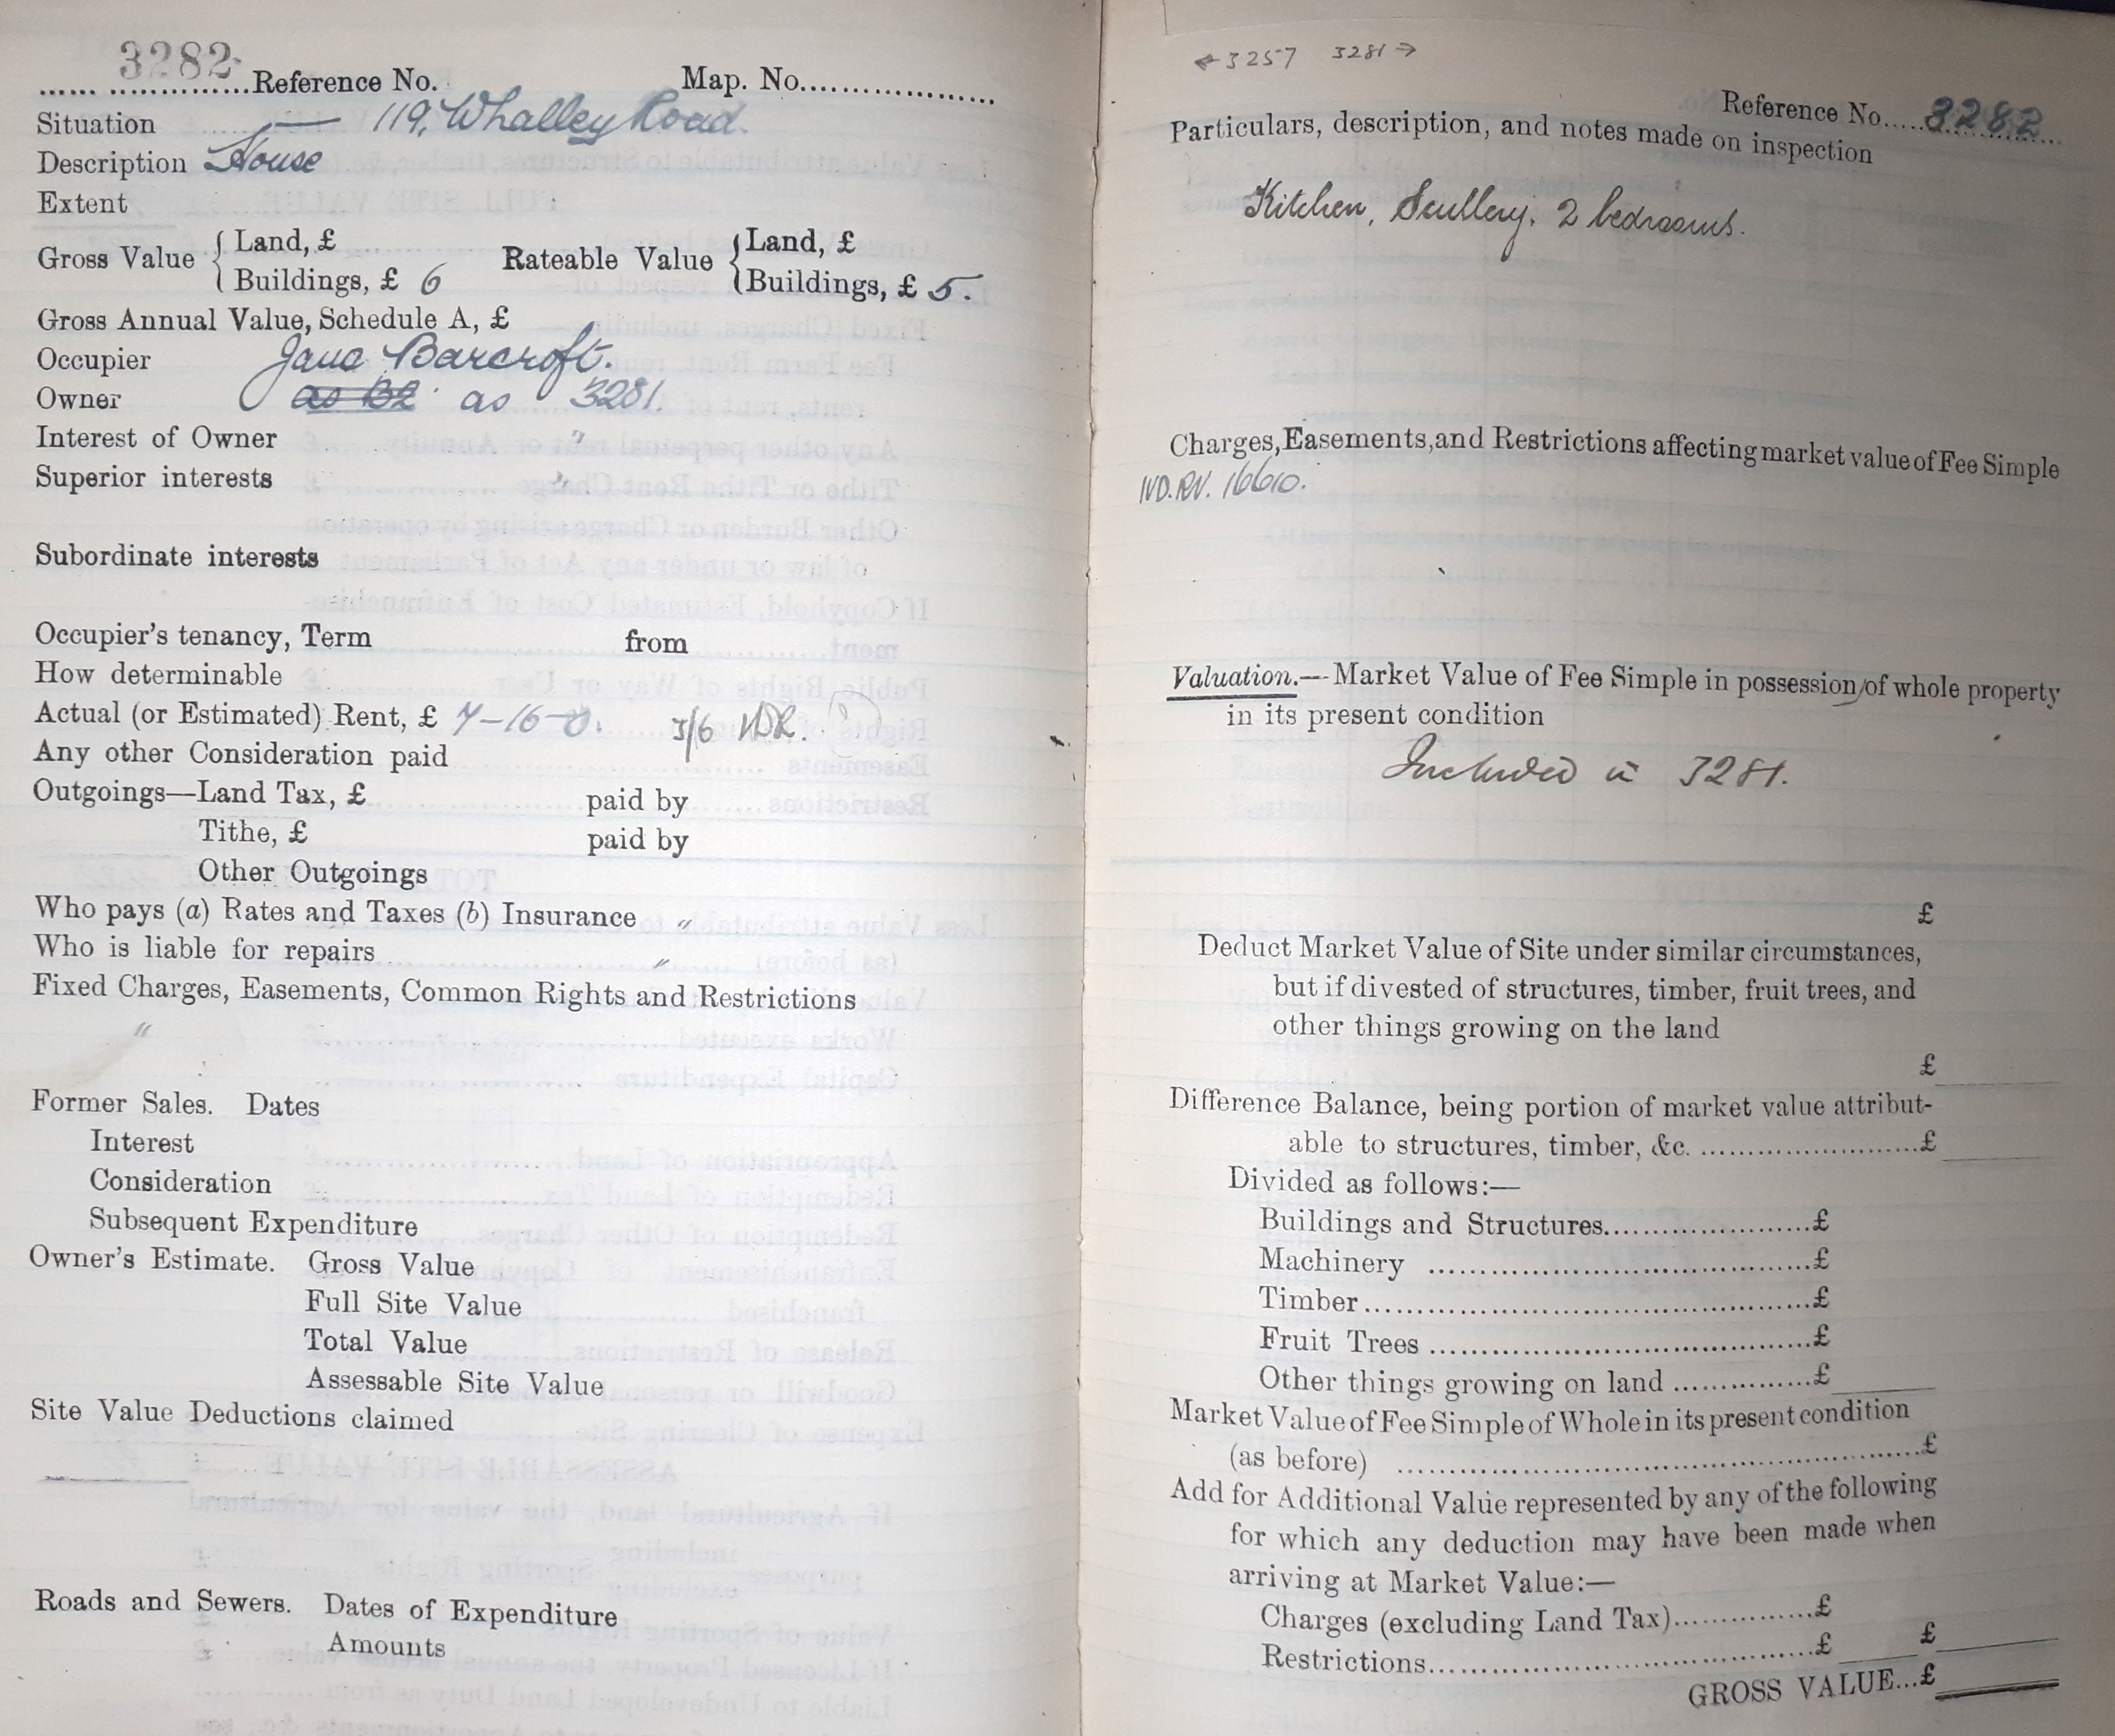 3282 Reference No. Map. No.
Situation 119, Whalley Road
Description House
Extent
Gross Value { Land, £ Rateable Value { Land, £
Buildings, £ 6 Buildings, £ 5.
Gross Annual Value, Schedule A, £
Occupier Jane Barcroft.
Owner as 3281.
Interest of Owner "
Superior interests "
Subordinate interests
Occupier's tenancy, Term from
How determinable
Actual (or Estimated) Rent, £ 7-16-0. 3/6
Any other Consideration paid
Outgoings—Land Tax, £ paid by
Tithe, £ paid by
Other Outgoings
Who pays (a) Rates and Taxes (b) Insurance "
Who is liable for repairs "
Fixed Charges, Easements, Common Rights and Restrictions
"
Former Sales. Dates
Interest
Consideration
Subsequent Expenditure
Owner's Estimate. Gross Value
Full Site Value
Total Value
Assessable Site Value
Site Value Deductions claimed
Roads and Sewers. Dates of Expenditure
Amounts
← 3257 3281 →
Reference No. 3282
Particulars, description, and notes made on inspection
Kitchen, Scullery. 2 bedrooms.
Charges, Easements, and Restrictions affecting market value of Fee Simple
IVD. RV. 16610.
Valuation.—Market Value of Fee Simple in possession of whole property
in its present condition
Included in 3281.
£
Deduct Market Value of Site under similar circumstances,
but if divested of structures, timber, fruit trees, and
other things growing on the land
£
Difference Balance, being portion of market value attribut-
able to structures, timber, &c. £
Divided as follows:—
Buildings and Structures £
Machinery £
Timber £
Fruit Trees £
Other things growing on land £
Market Value of Fee Simple of Whole in its present condition
(as before) £
Add for Additional Value represented by any of the following
for which any deduction may have been made when
arriving at Market Value:—
Charges (excluding Land Tax) £
Restrictions £ £
GROSS VALUE...£